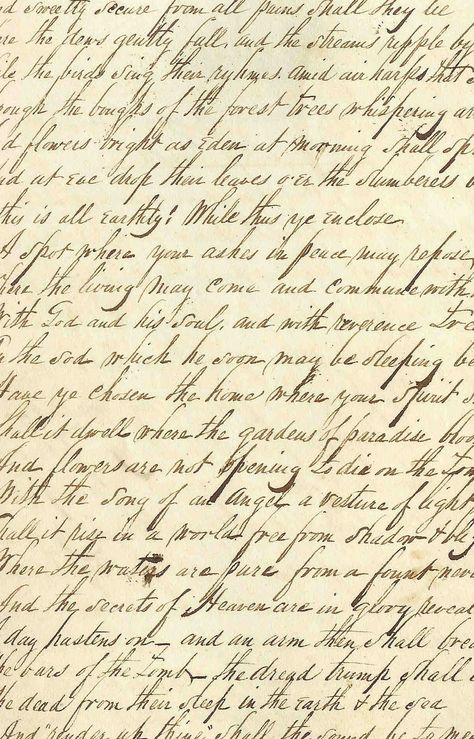 d sweetly secure from all pains shall they lie
re the dews gently fall, and the streams ripple by
ile the birds sing their rhymes amid air harps that
rough the boughs of the forest trees whispering are
d flowers bright as Eden at morning shall sp
nd at Eve drop their leaves o'er the slumberers
this is all Earthly! While thus ye enclose
A spot where your ashes in peace may repose
here the living may come and commune with
With God and his soul, and with reverence
the sod which he soon may be sleeping be
Have ye chosen the home where your Spirit s
Shall it dwell where the gardens of paradise blo
And flowers are not opening to die on the To
With the song of an Angel a vesture of light
hall it rise in a world free from shadow &
Where the waters are pure from a fount neve
And the secrets of Heaven are in glory revea
day hastens on — and an arm then shall brea
he bars of the Tomb — the dread trump shall
he dead from their sleep in the Earth & the Sea
And "render up thine" shall the sound be to